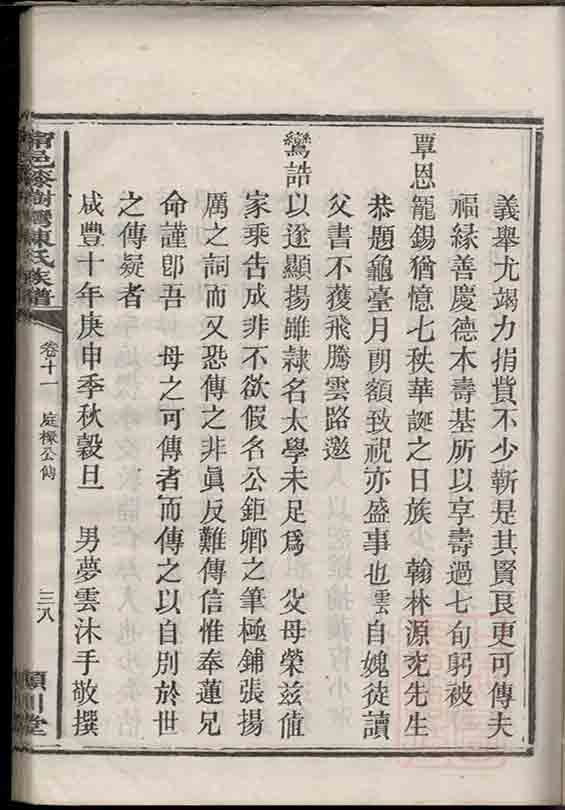 義舉尤竭力捐貲不少靳是其賢良更可傳夫
福緣善慶德本壽基所以享壽過七旬躬被
覃恩寵錫猶憶七秩華誕之日族 翰林源兖先生
恭題龜臺月朗額致祝亦盛事也雲自媿徒讀
父書不獲飛騰雲路邀
鸞誥以遂顯揚雖隸名太學未足爲 父母榮兹值
家乘告成非不欲假名公鉅卿之筆極鋪張揚
厲之詞而又恐傳之非眞反難傳信惟奉蓮兄
命謹卽吾 母之可傳者而傳之以自別於世
之傳疑者
咸豐十年庚申季秋穀旦 男夢雲沐手敬撰
甯邑漆樹灣陳氏族譜 卷十一 庭櫟公傳 三八 潁川堂